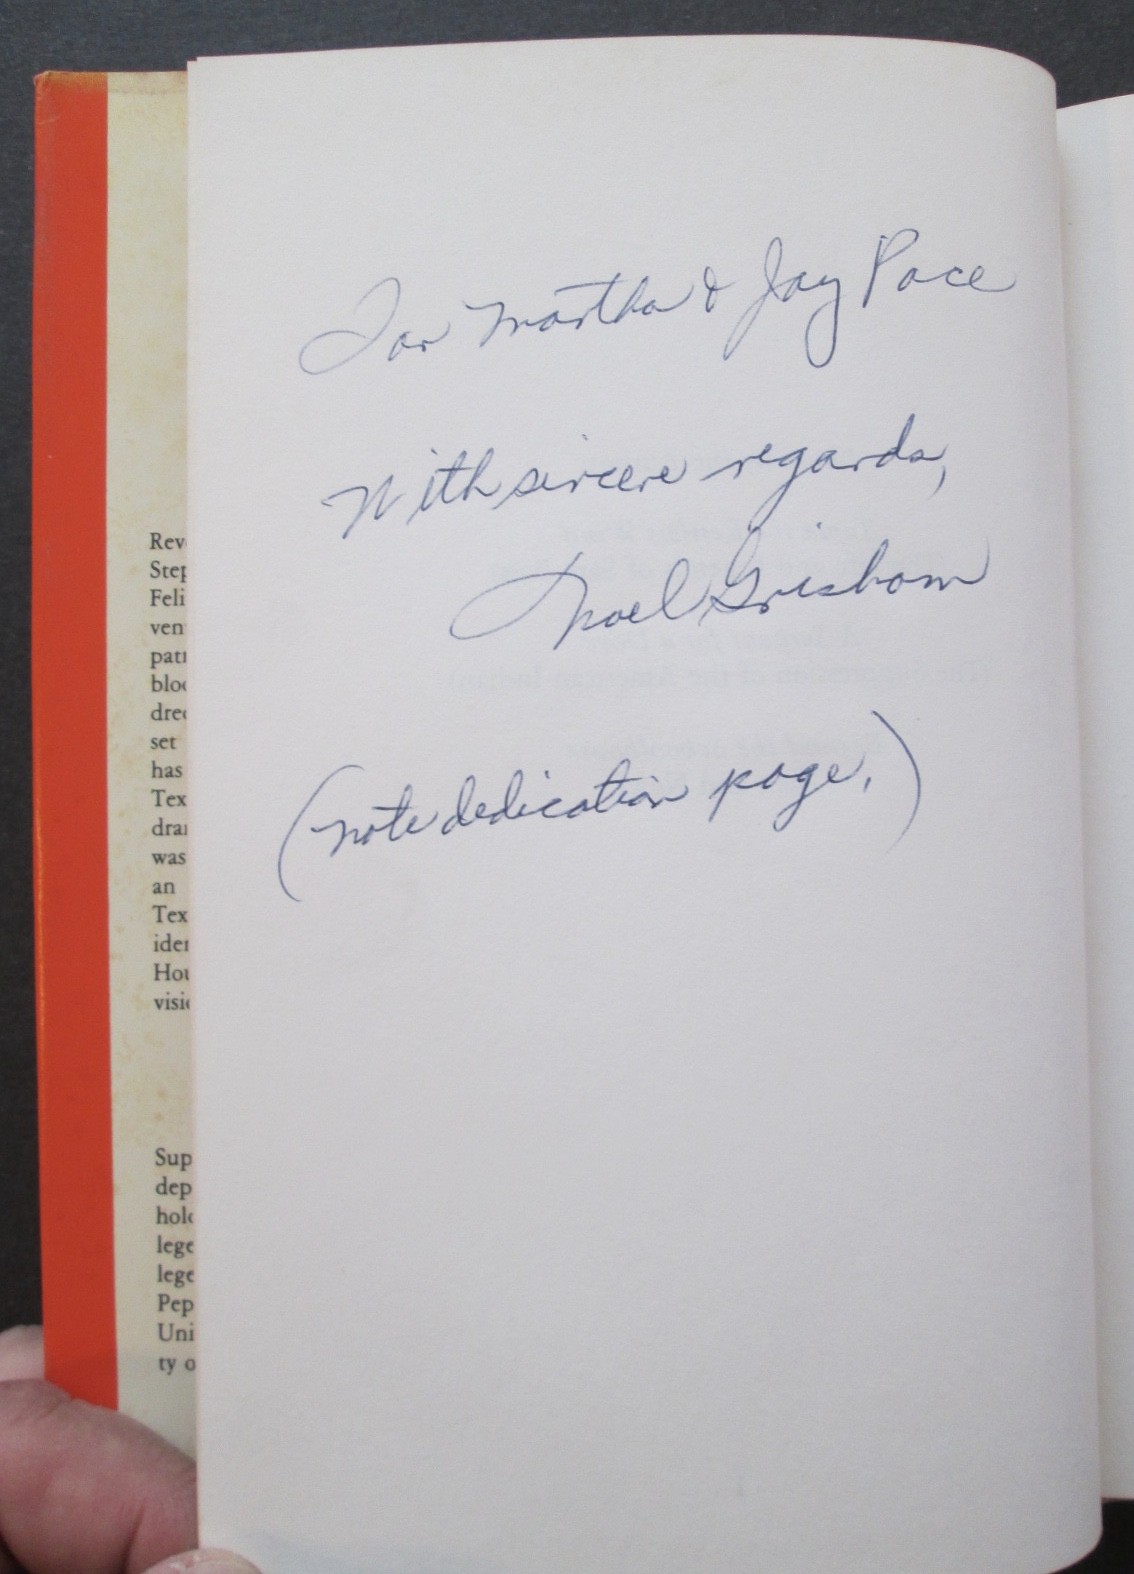 For Martha & Jay Pace
With sincere regards,
Noel Grisham
(note dedication page.)
Rev
Step
Feli
ven
patr
bloo
dred
set
has
Tex
dra
was
an
Tex
iden
Hou
visi
Sup
dep
hold
lege
lege
Pep
Uni
ty o